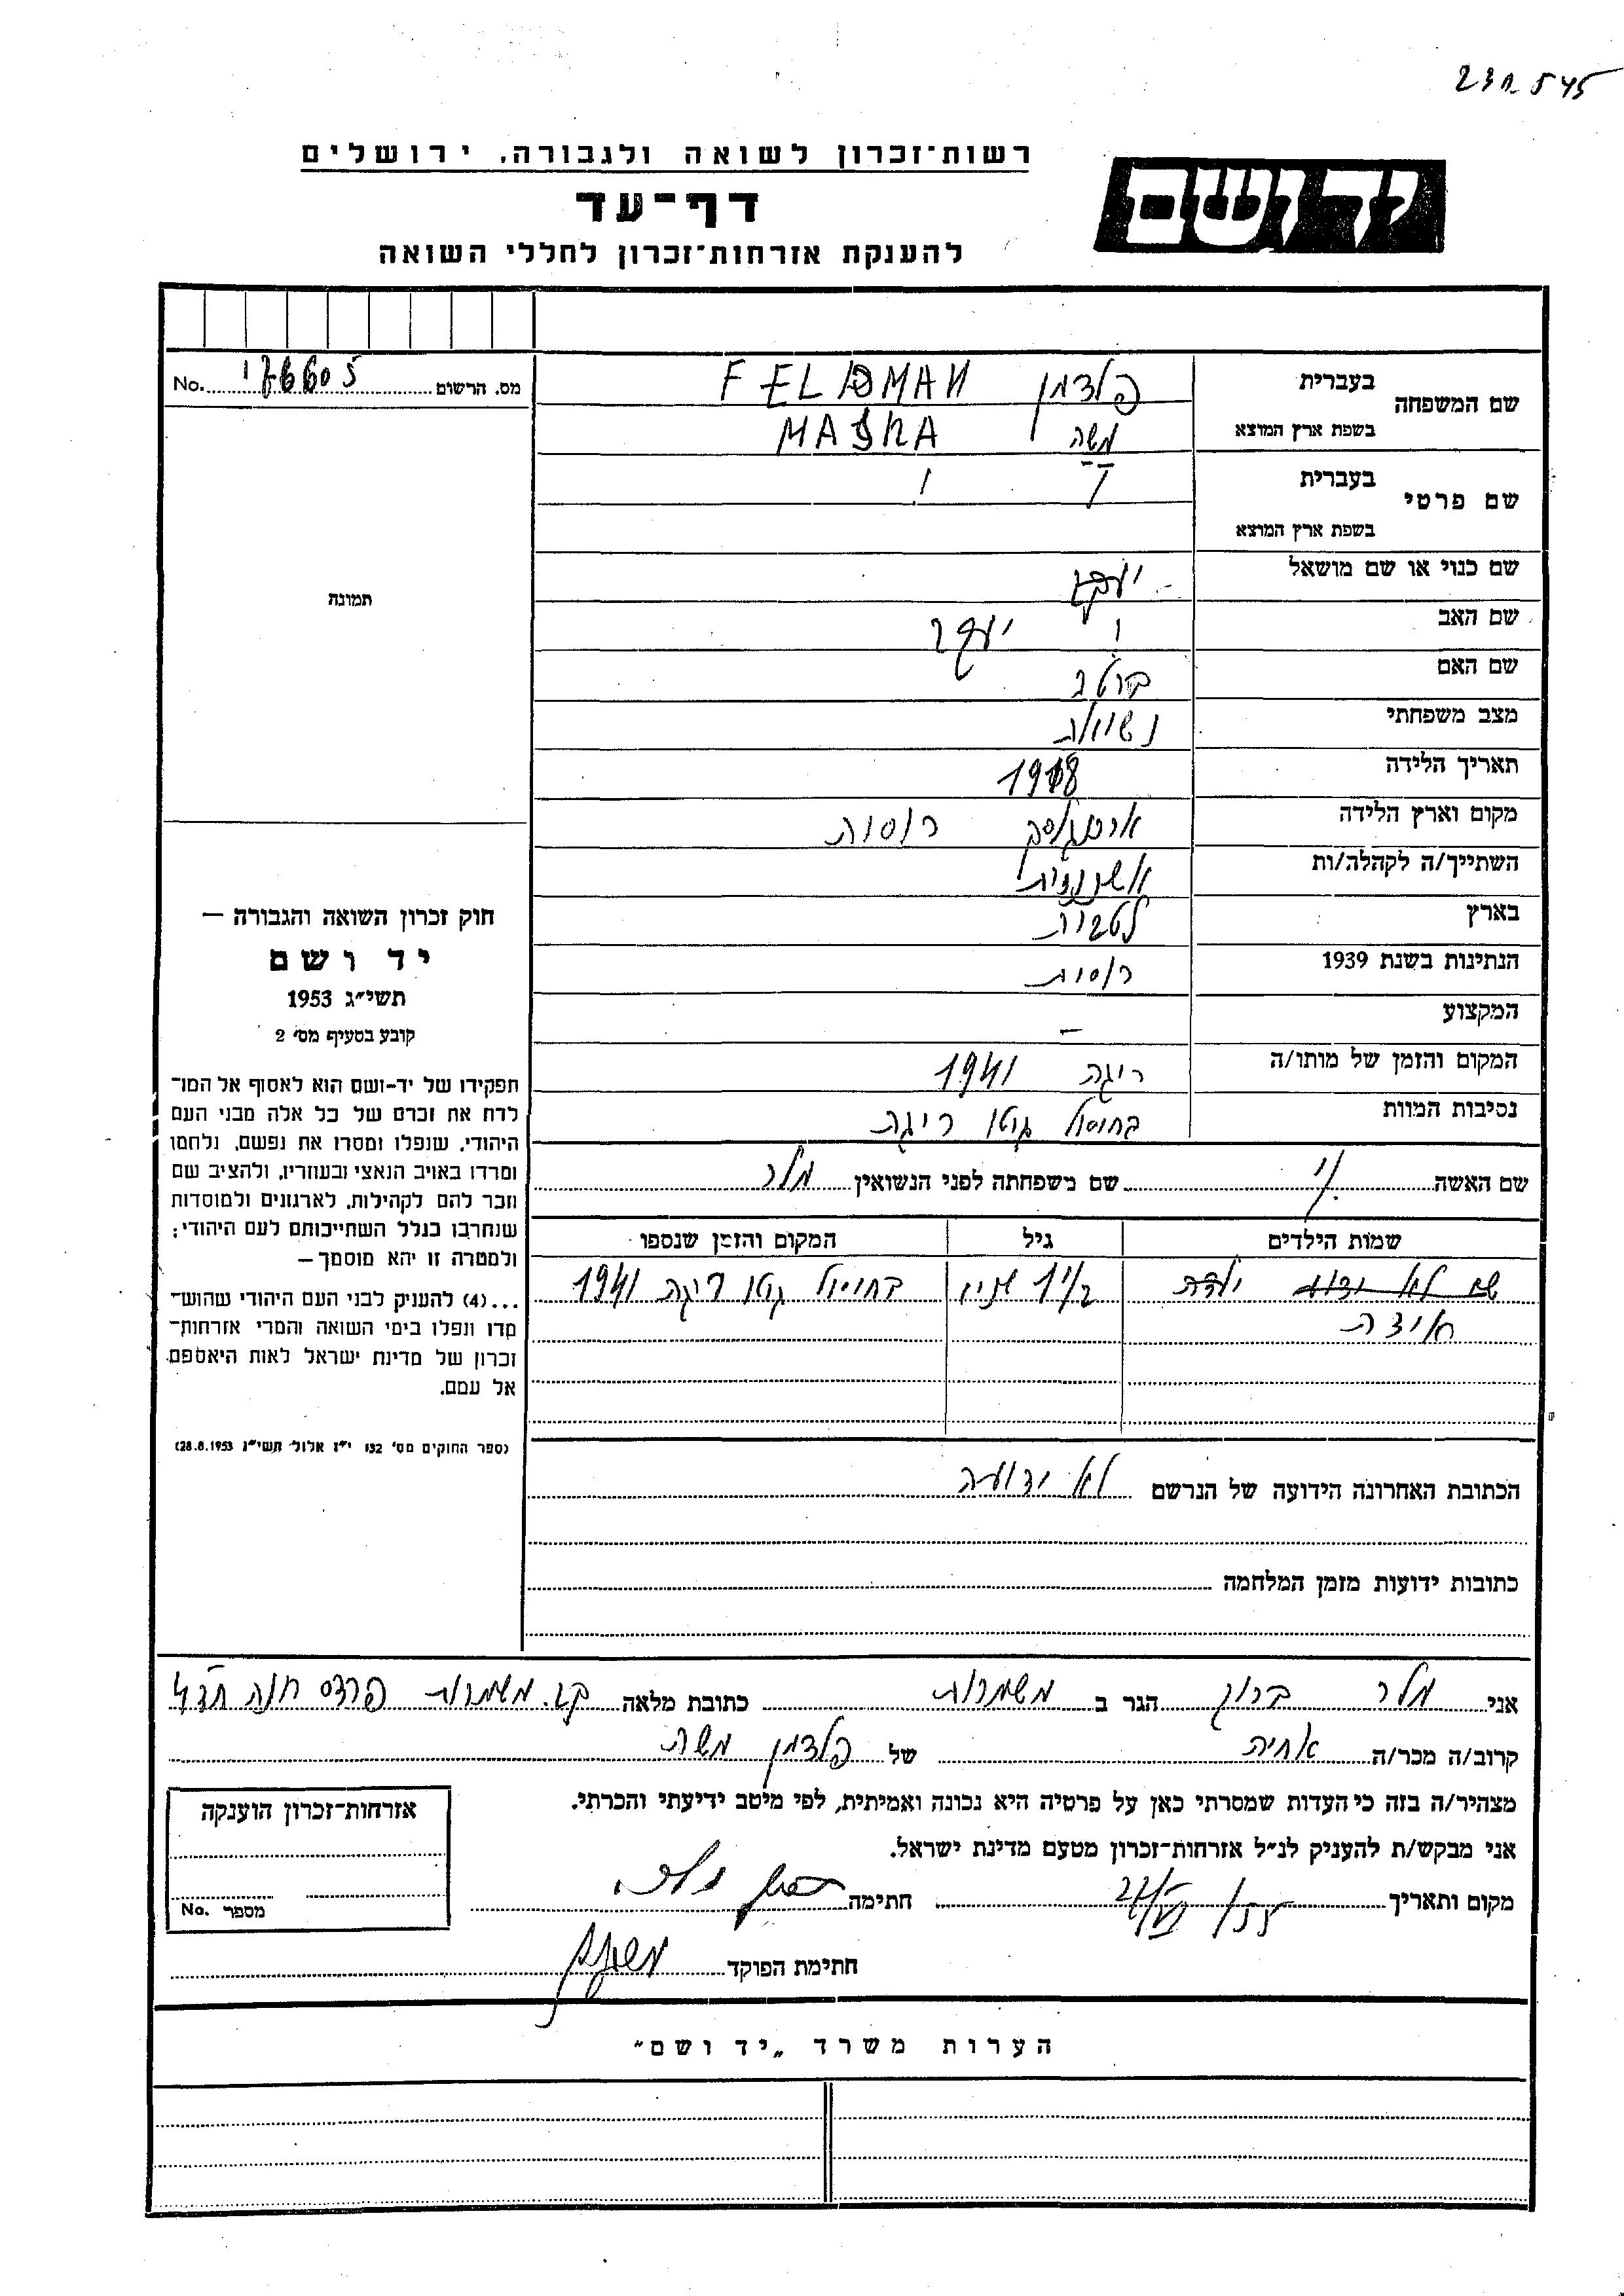 231545
ידושם
רשות־זכרון לשואה ולגבורה, ירושלים
דף־עד
להענקת אזרחות־זכרון לחללי השואה
מס. הרשום 176605 No.
תמונה
חוק זכרון השואה והגבורה —
יד ושם
תשי״ג 1953
קובע בסעיף מס׳ 2
תפקידו של יד-ושם הוא לאסוף אל המו־
לדת את זכרם של כל אלה מבני העם
היהודי, שנפלו ומסרו את נפשם, נלחמו
ומרדו באויב הנאצי ובעוזריו, ולהציב שם
וזכר להם לקהילות, לארגונים ולמוסדות
שנחרבו בגלל השתייכותם לעם היהודי;
ולמטרה זו יהא מוסמך —
...(4) להעניק לבני העם היהודי שהוש־
מדו ונפלו בימי השואה והמרי אזרחות־
זכרון של מדינת ישראל לאות היאספם
אל עמם.
(ספר החוקים מס׳ 132 י״ז אלול תשי״ג 28.8.1953)
שם המשפחה בעברית פלדמן FELDMAN
בשפת ארץ המוצא משה MASHA
שם פרטי בעברית
בשפת ארץ המוצא
שם כנוי או שם מושאל יעקב
שם האב יעקב
שם האם ברטה
מצב משפחתי נשואה
תאריך הלידה 1918
מקום וארץ הלידה רוסיה
השתייך/ה לקהלה/ות אשכנזית
בארץ לטביה
הנתינות בשנת 1939 רוסית
המקצוע —
המקום והזמן של מותו/ה ריגה 1941
נסיבות המוות בחיסול גטו ריגה
שם האשה שם משפחתה לפני הנשואין מלר
שמות הילדים גיל המקום והזמן שנספו
שם לא ידוע ילדה שנים בחיסול גטו ריגה 1941
אידה
הכתובת האחרונה הידועה של הנרשם לא ידועה
כתובות ידועות מזמן המלחמה
אני מלר ברוך הגר ב משמרות כתובת מלאה קב. משמרות פרדס חנה
קרוב/ה מכר/ה אחיה של פלדמן משה
מצהיר/ה בזה כי העדות שמסרתי כאן על פרטיה היא נכונה ואמיתית, לפי מיטב ידיעתי והכרתי.
אני מבקש/ת להעניק לנ״ל אזרחות־זכרון מטעם מדינת ישראל.
מקום ותאריך חתימה
חתימת הפוקד
אזרחות־זכרון הוענקה
מספר No.
הערות משרד „יד ושם״